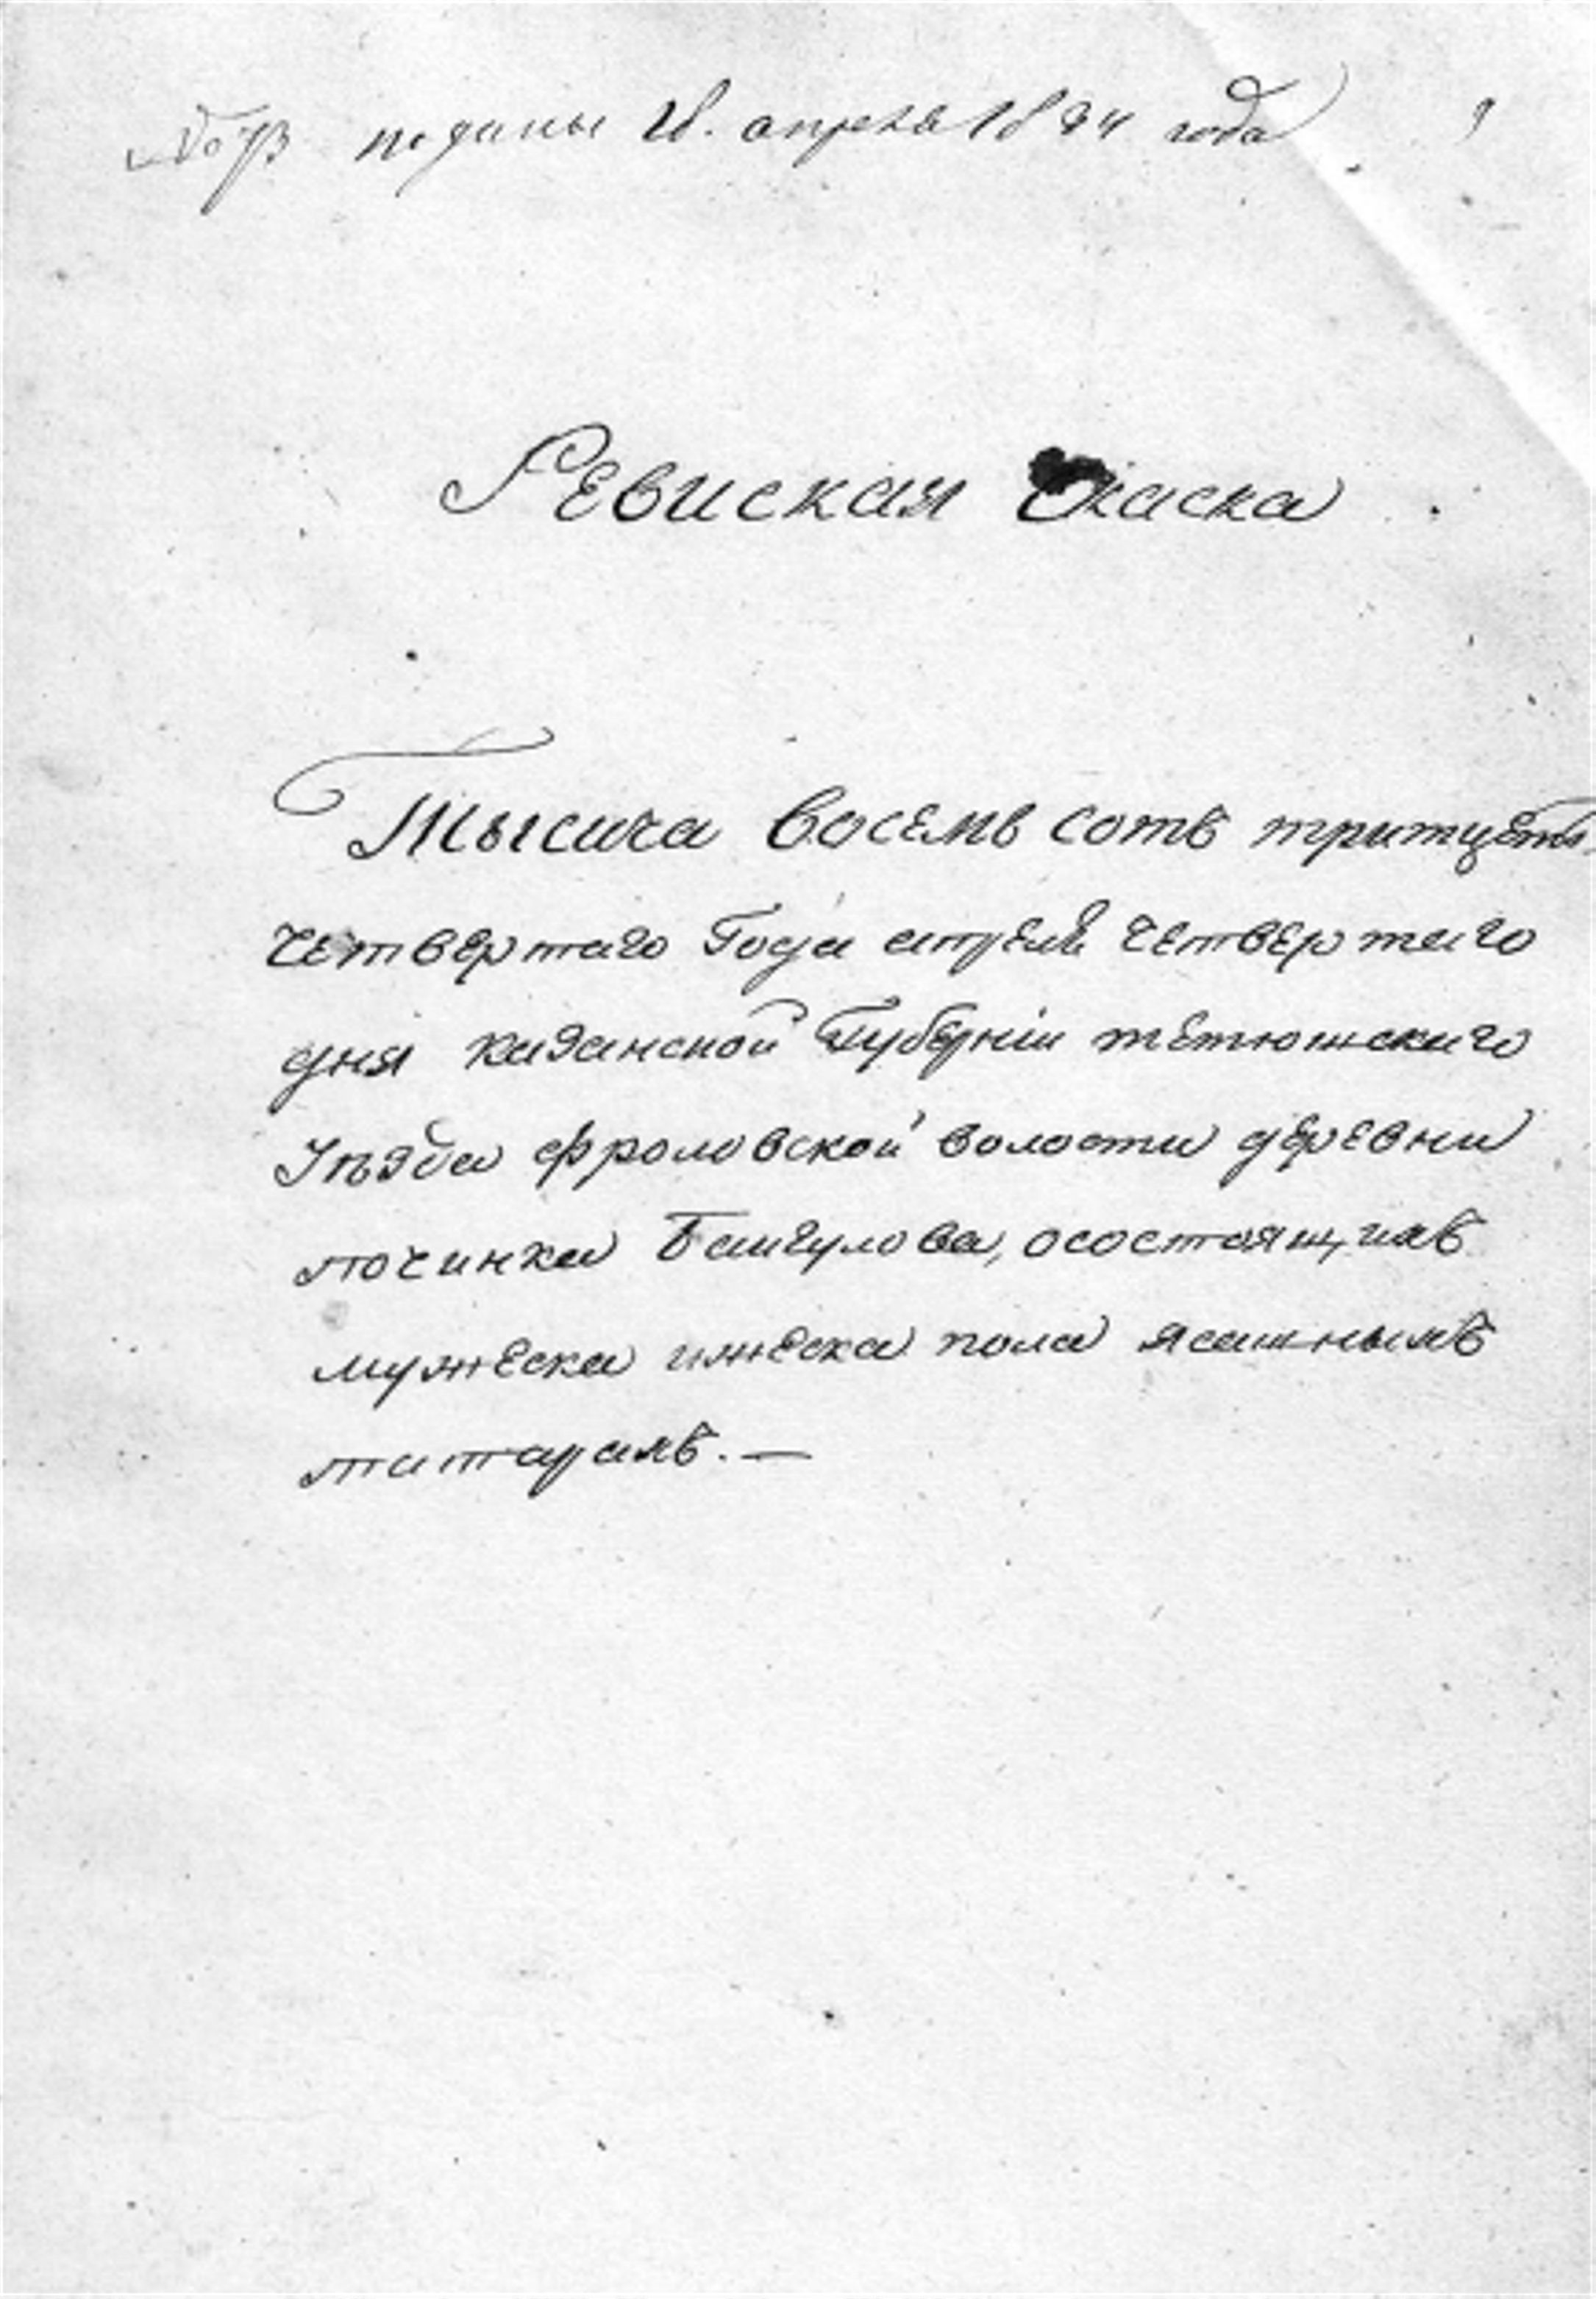 № 73 поданы 28. апреля 1834 года
Ревиская Скаска
Тысича Восемь Сотъ тритцеть
четвертаго Года апреля четвертаго
дня казанской Губерніи тетюшскаго
Уѣзда фроловской волости деревни
починка Баигулова, осостоящихъ
мужеска ижеска пола ясашнымъ
татарамъ. —